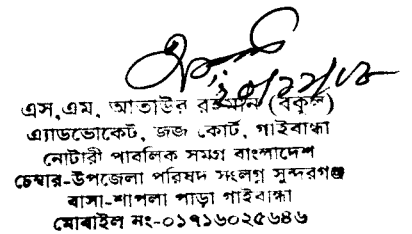 এস,এম, আতাউর রহমান (বকুল)
এ্যাডভোকেট, জজ কোর্ট, গাইবান্ধা
নোটারী পাবলিক সমগ্র বাংলাদেশ
চেম্বার-উপজেলা পরিষদ সংলগ্ন সুন্দরগঞ্জ
বাসা-শাপলা পাড়া গাইবান্ধা
মোবাইল নং-০১৭১৬০২৫৬৪৬